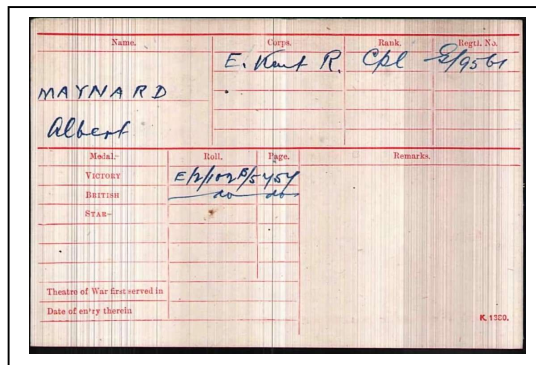 Name. Corps. Rank. Regtl. No.
E. Kent R. Cpl G/9561
MAYNARD
Albert
Medal.- Roll. Page. Remarks.
VICTORY E/2/102B/5 5454
BRITISH do do
STAR-
Theatre of War first served in
Date of entry therein
K. 1380.